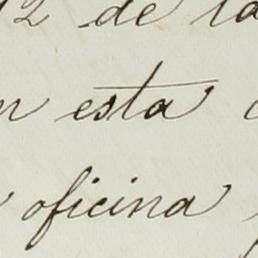 12 de la
esta
oficina